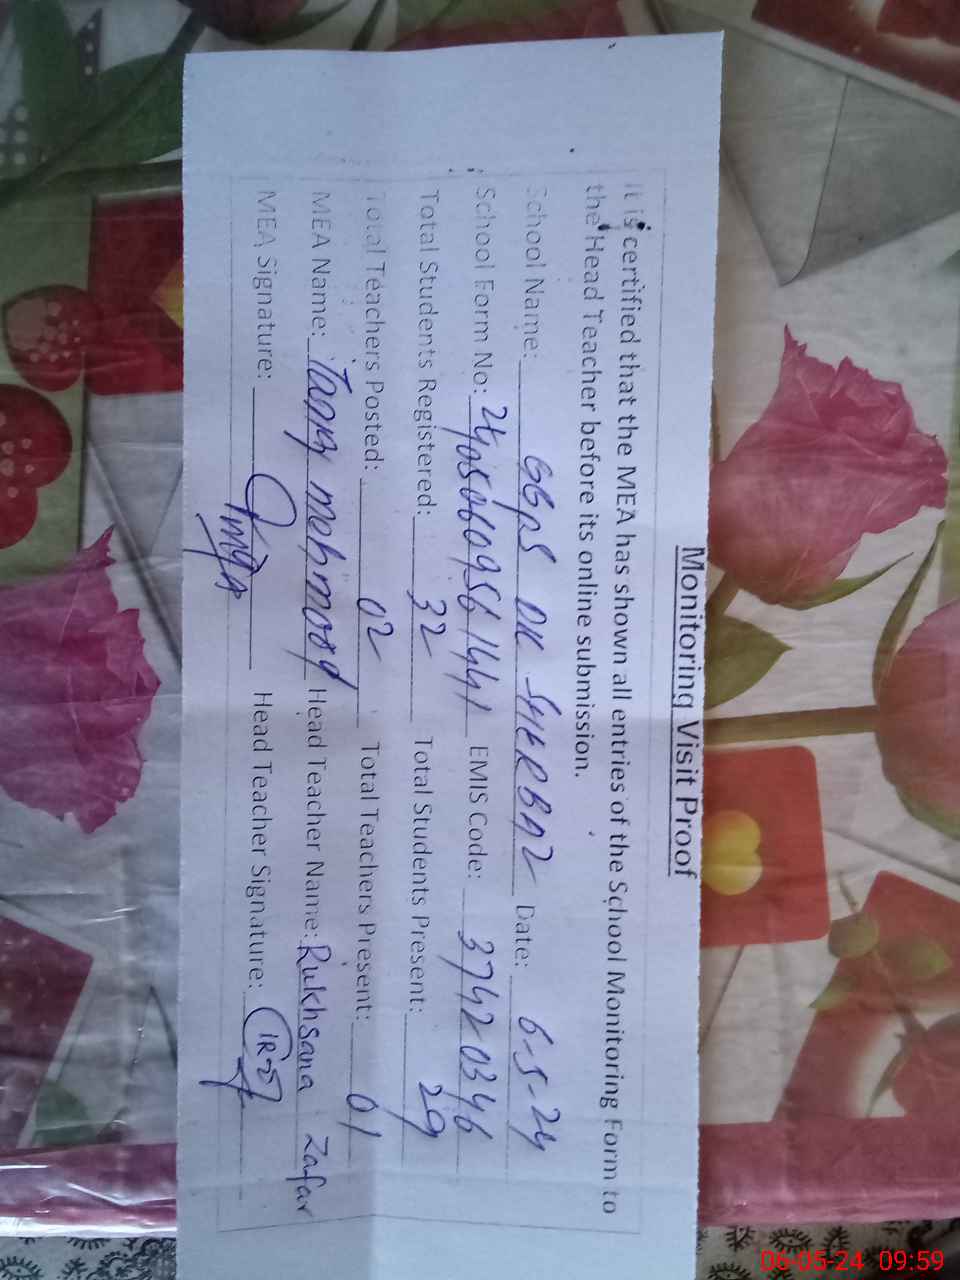 Monitoring Visit Proof
It is certified that the MEA has shown all entries of the School Monitoring Form to
the Head Teacher before its online submission.
School Name: GGPS DK SHERBAZ Date: 6-5-24
School Form No: 24050609561441 EMIS Code: 37420346
Total Students Registered: 32 Total Students Present: 29
Total Teachers Posted: 02 Total Teachers Present: 01
MEA Name: mehmood Head Teacher Name: Rukhsana Zafar
MEA Signature: Head Teacher Signature:
06-05-24 09:59